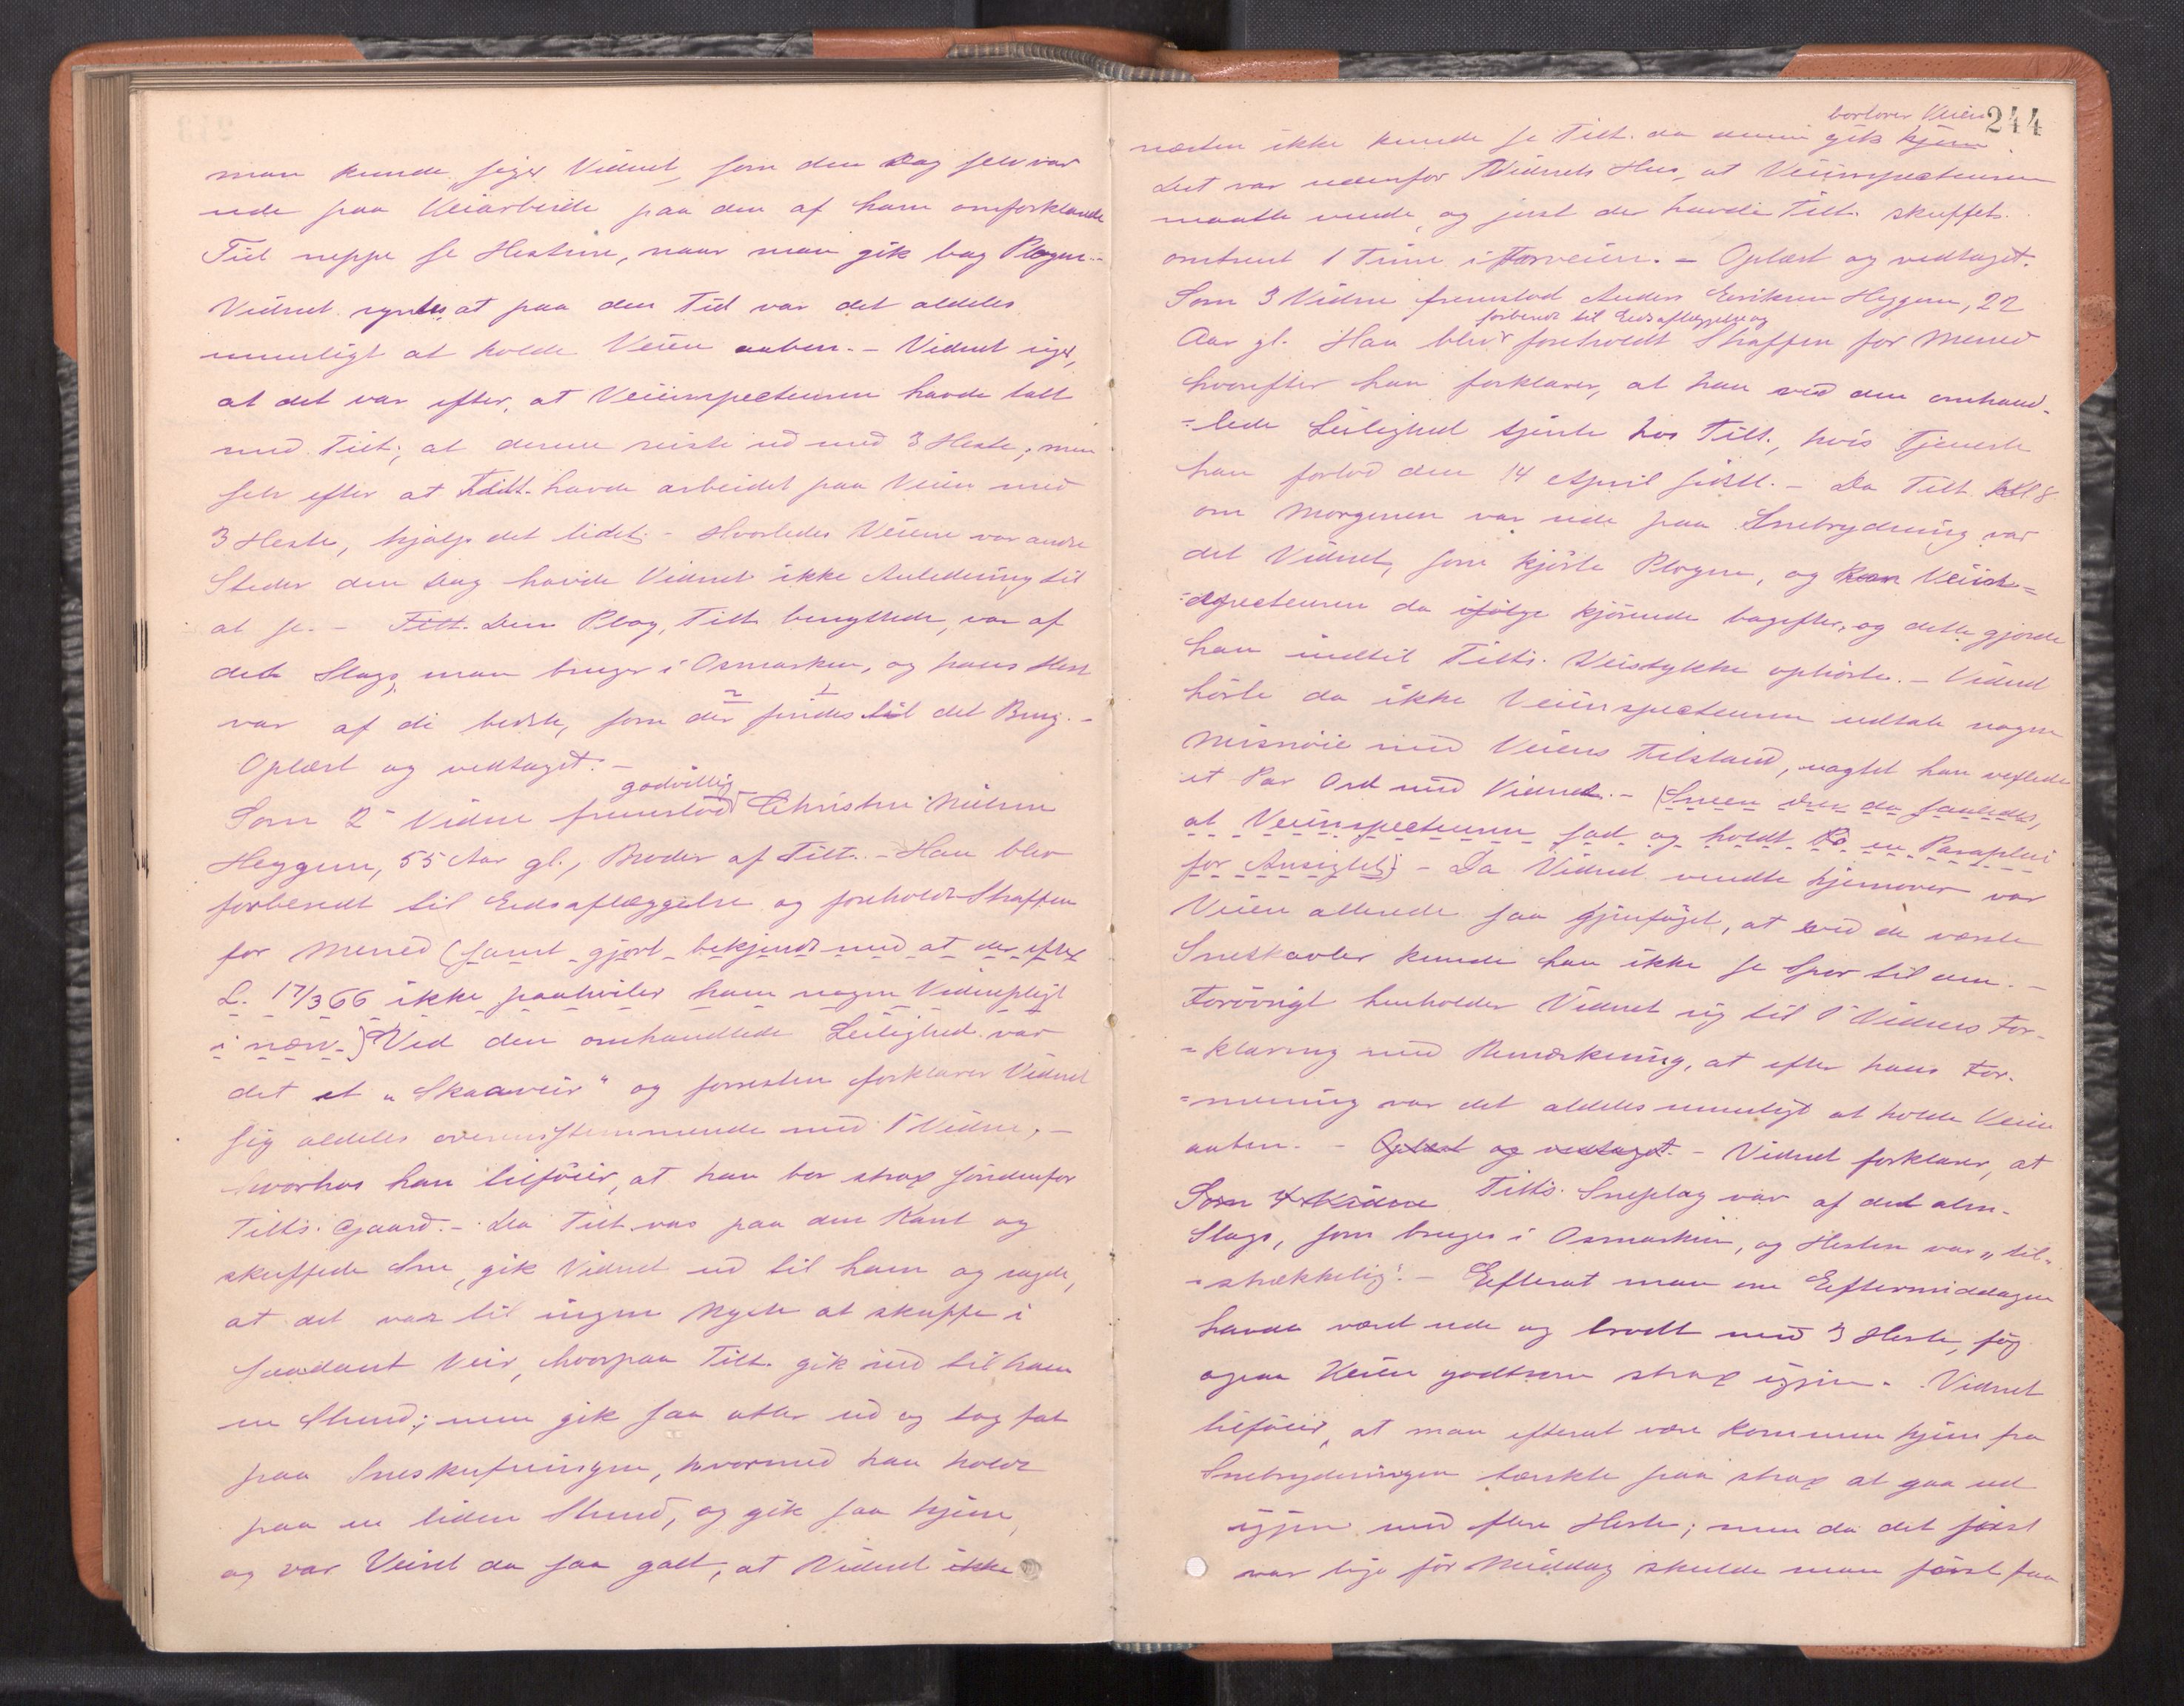 man kunde siger Vidnet, som den Dag selv var
ude paa Veiarbeide paa den af ham omforklarede
Tid neppe se Hestene, naar man gik bag Plogen.-
Vidnet syntes at paa den Tid var det aldeles
umuligt at holde Veien aaben. - Vidnet siger,
at det var efter, at Veiinspecteuren havde talt
med Tilt., at denne reiste ud med 3 Heste; men
selv efter at Tilt. havde arbeidet paa Veien med
3 Heste, hjalp det lidet. - Hvorledes Veiene var andre
Steder den Dag havde Vidnet ikke Anledning til
at se. - Tilt. Den Plog, Tilt. benyttede, var af
det Slags, man bruger i Osmarken, og hans Hest
var af de bedste, som der findes til det Brug. -
Oplæst og vedtaget. -
godvillig
Som 2det Vidne fremstod Christen Nielsen
Heggem, 55 Aar gl., Broder af Tilt. - Han blev
forberedt til Edsaflæggelse og foreholdt Straffen
for Mened (samt gjort bekjendt med at der efter
L. 17/3 66 ikke paahviler ham nogen Vidnepligt
i nærv.) Ved den omhandlede Leilighed var
det et "Skaaveir" og forresten forklarer Vidnet
sig aldeles overensstemmende med 1 Vidne, -
hvorhos han tilføier, at han bor strax søndenfor
Tilts. Gaard. - Da Tilt. var paa den Kant og
skuffede Sne, gik Vidnet ud til ham og sagde,
at det var til ingen Nytte at skuffe i
saadant Veir, hvorpaa Tilt. gik ind til ham
en Stund; men gik saa atter ud og tog fat
paa Sneskufningen, hvormed han holdt
paa en liden Stund, og gik saa hjem,
og var Veiret da saa galt, at Vidnet ikke
244
bortover Veien
næsten ikke kunde se Tilt. da denne gik hjem
Det var udenfor Vidnets Hus, at Veiinspecteuren
maatte vende, og just der havde Tilt. skuffet
omtrent 1 Time i Forveien. - Oplæst og vedtaget.
Som 3 Vidne fremstod Anders Eriksen Heggem, 22
forberedt til Edsaflæggelse og
Aar gl. Han blev foreholdt Straffen for Mened
hvorefter han forklarer, at han ved den omhand-
=lede Leilighed tjente hos Tilt., hvis Tjeneste
han forlod den 14 April sidstl. - Da Tilt. Kl 8
om Morgenen var ude paa Snebrydning var
det Vidnet, som kjørte Plogen, og kom Veiin=
=specteuren da ifølge kjørende bagefter, og dette gjorde
han indtil Tilts. Veistykke ophørte. - Vidnet
hørte da ikke Veiinspecteuren udtale nogen
Misnøie med Veiens Tilstand, uagtet han vexlede
et Par Ord med Vidnet. - (Sneen drev da saaledes,
at Veiinspecteuren sad og holdt en Paraplui
for Ansigtet). - Da Vidnet vendte hjemover var
Veien allerede saa gjenføget, at ved de værste
Sneskavler kunde han ikke se Spor til den. -
Forøvrigt henholder Vidnet sig til 1 Vidnes For-
=klaring med Bemærkning, at efter hans For-
=mening var det aldeles umuligt at holde Veien
aaben. - Oplæst og vedtaget. - Vidnet forklarer, at
Som 4 Vidne Tilts. Sneplog var af det alm.
Slags, som bruges i Osmarken, og Hesten var "til-
=strækkelig". - Efterat man om Eftermiddagen
havde været ude og brødt med 3 Heste, føg
ogsaa Veien godtsom strax igjen. - Vidnet
tilføier, at man efterat være kommen hjem fra
Snebrydningen tænkte paa strax at gaa ud
igjen med flere Heste; men da det først
var lige før Middag skulde man først faa